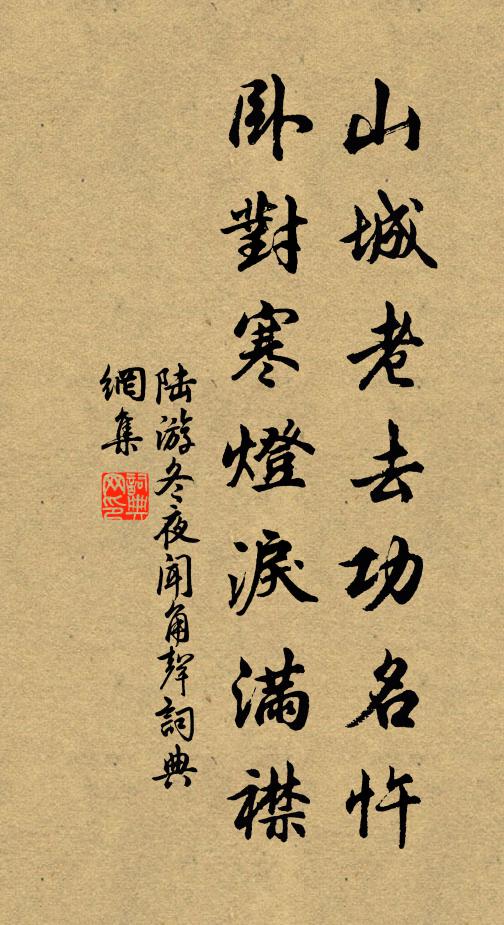 山城老去功名忤
卧對寒燈淚滿襟
陸游冬夜聞角聲詞典
網集
詞典
网印